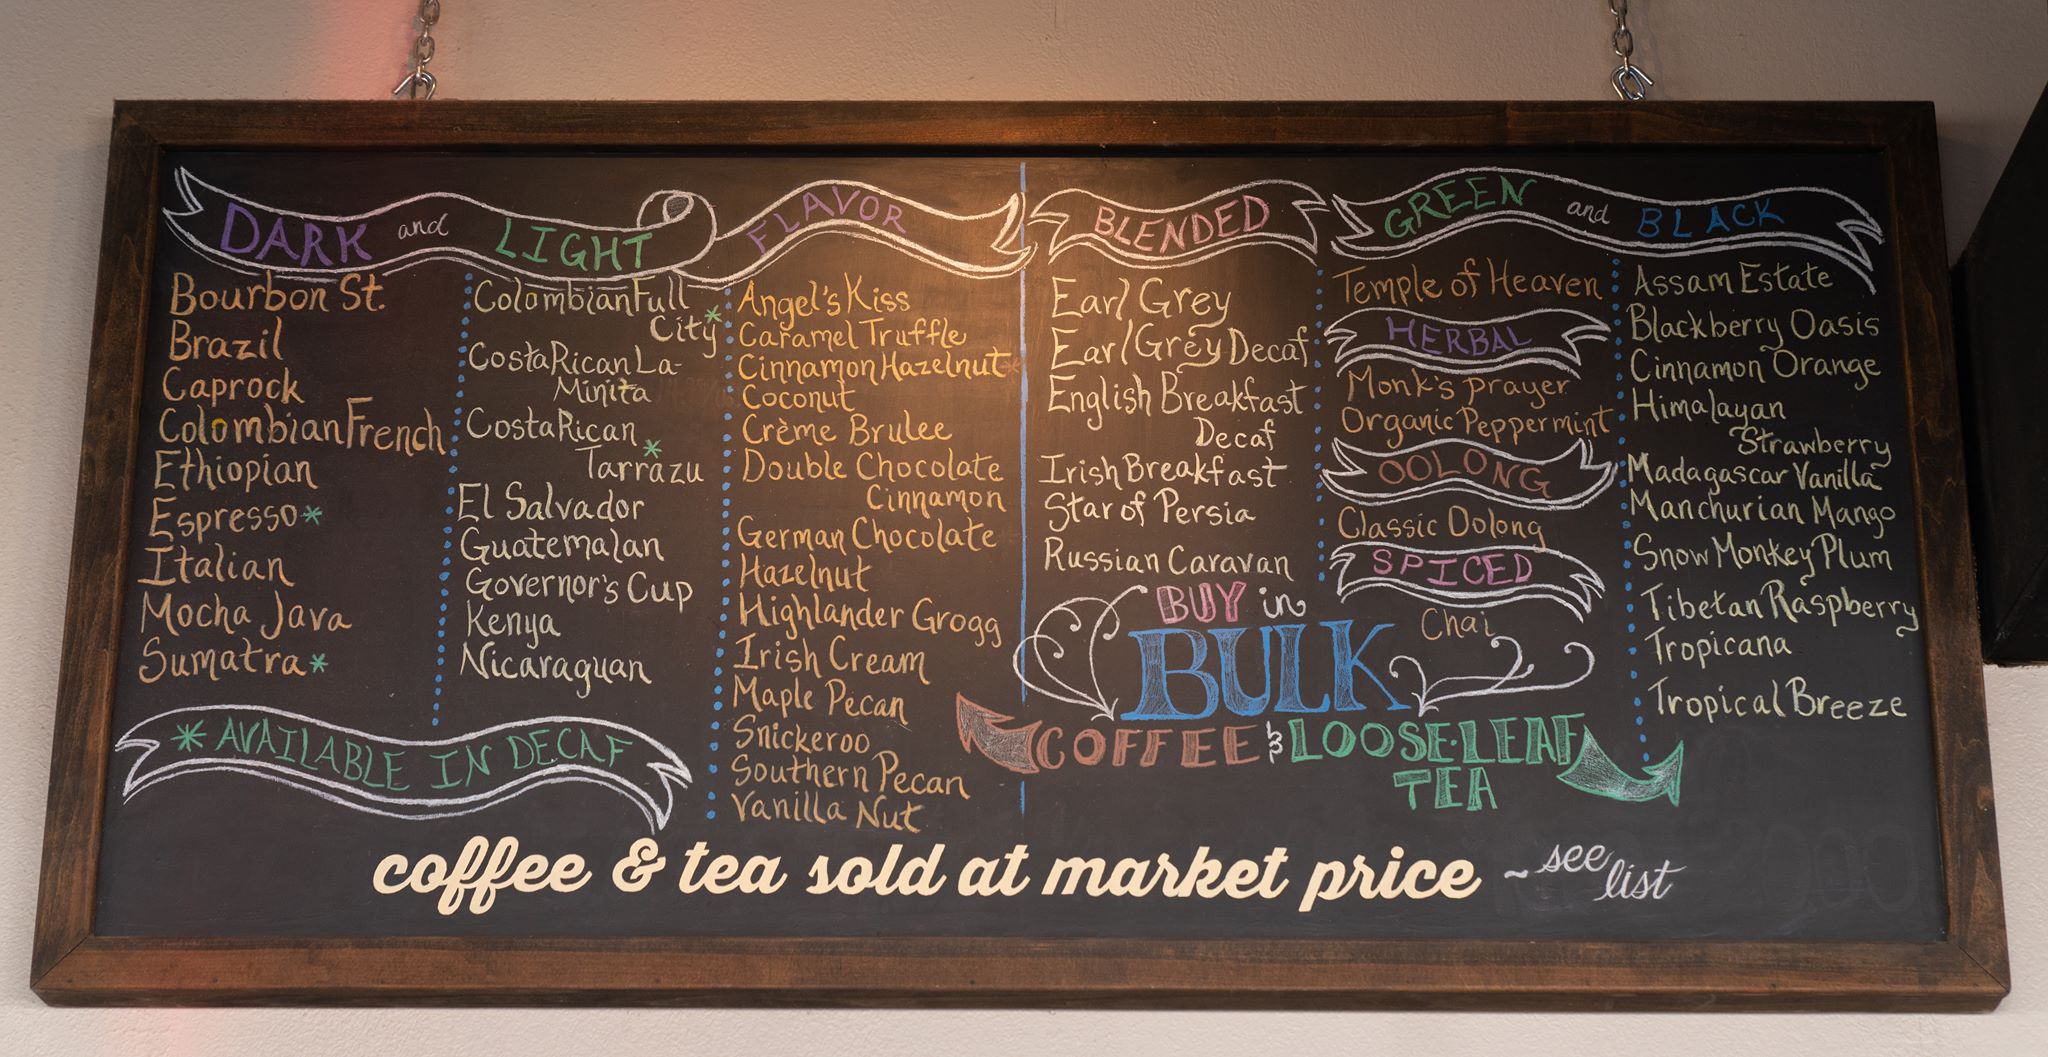 DARK and LIGHT
Bourbon St.
Brazil
Caprock
Colombian French
Ethiopian
Espresso*
Italian
Mocha Java
Sumatra*
Colombian Full
City*
Costa Rican La-
Minita
Costa Rican
Tarrazu*
El Salvador
Guatemalan
Governor's Cup
Kenya
Nicaraguan
* AVAILABLE IN DECAF
FLAVOR
Angel's Kiss
Caramel Truffle
Cinnamon Hazelnut*
Coconut
Crème Brulee
Double Chocolate
Cinnamon
German Chocolate
Hazelnut
Highlander Grogg
Irish Cream
Maple Pecan
Snickeroo
Southern Pecan
Vanilla Nut
BLENDED
Earl Grey
Earl Grey Decaf
English Breakfast
Decaf
Irish Breakfast
Star of Persia
Russian Caravan
GREEN and BLACK
Temple of Heaven
HERBAL
Monk's prayer
Organic Peppermint
OOLONG
Classic Oolong
SPICED
Chai
Assam Estate
Blackberry Oasis
Cinnamon Orange
Himalayan
Strawberry
Madagascar Vanilla
Manchurian Mango
Snow Monkey Plum
Tibetan Raspberry
Tropicana
Tropical Breeze
BUY in
BULK
COFFEE & LOOSE-LEAF
TEA
coffee & tea sold at market price ~ see
list